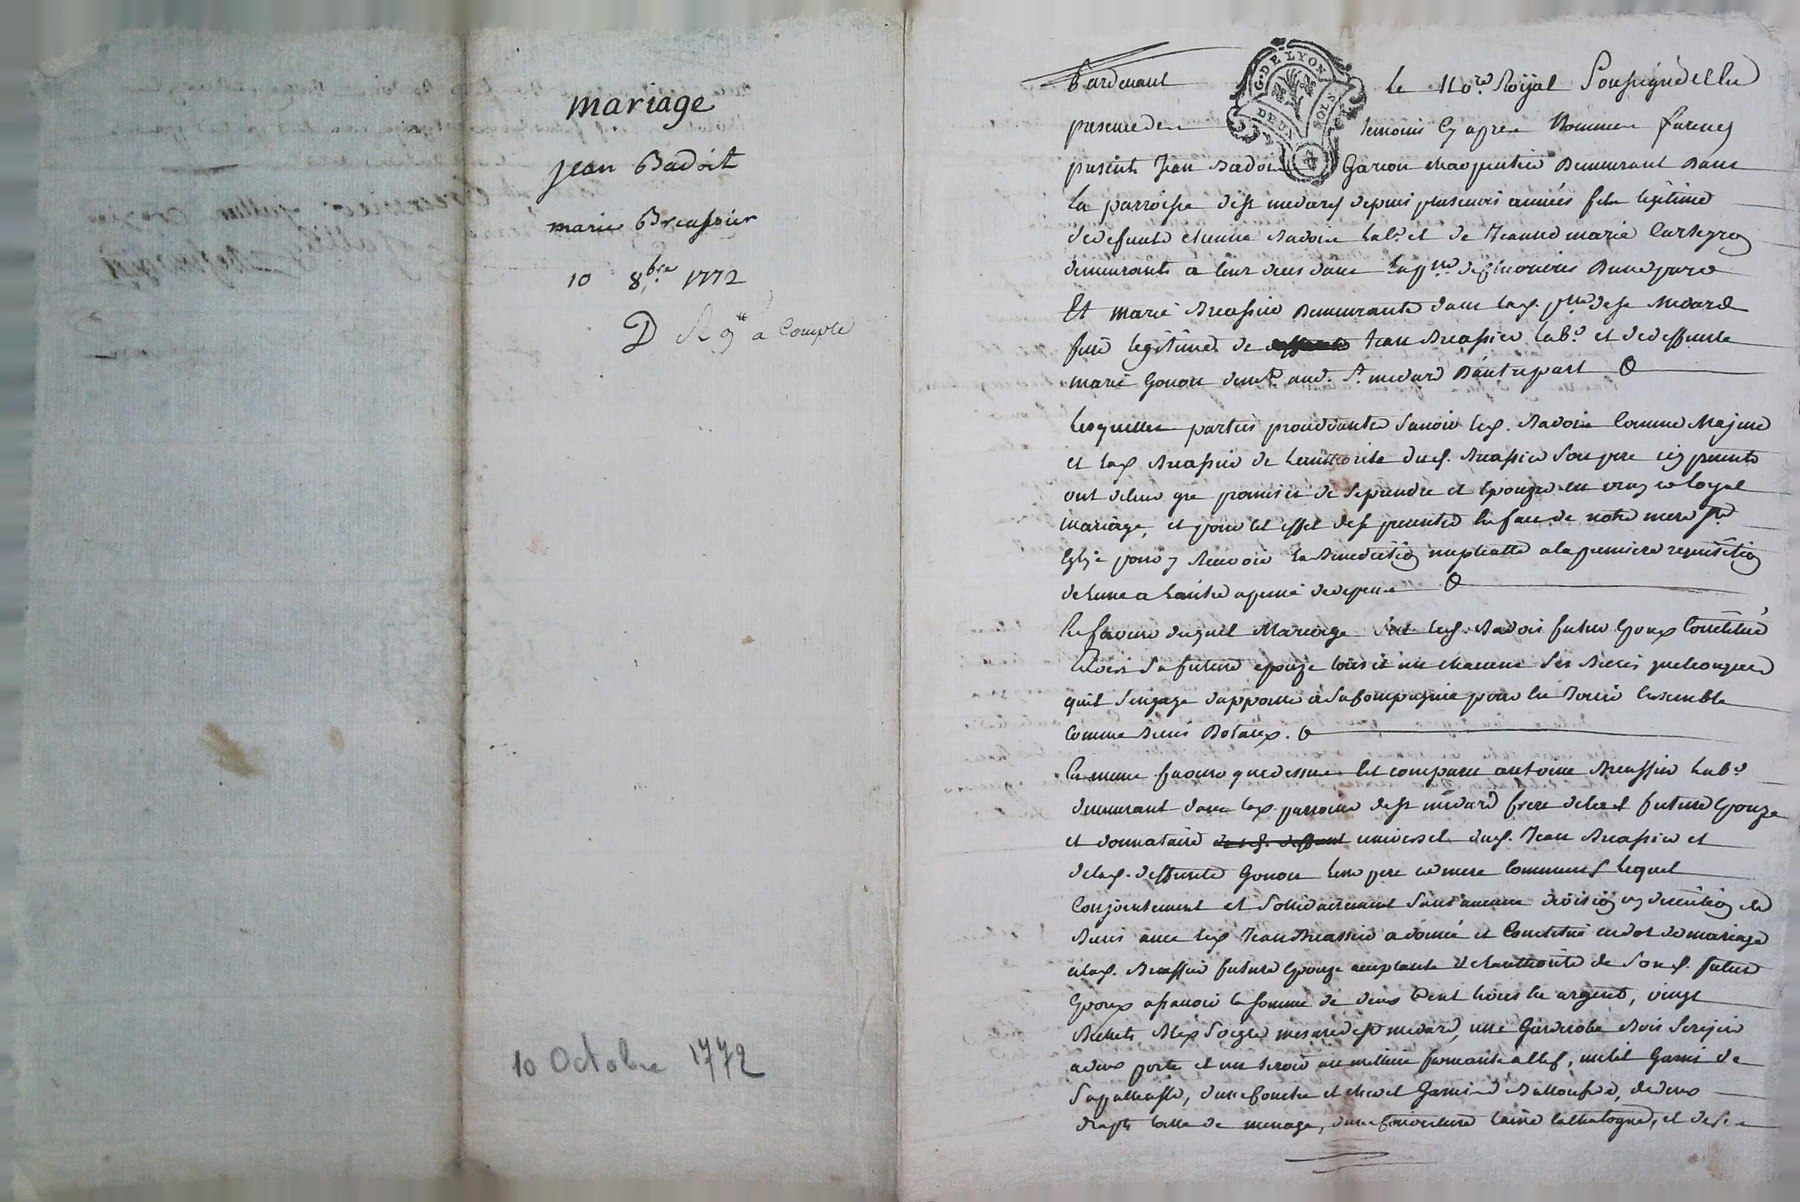 mariage
jean Badoit
marie Breassier
10 8bre 1772
D R 9# a Compte
10 Octobre 1772
G. DE LYON
DEUX SOLS
Pardevant le No.re Royal Soussigné et En
presence des temoins Cy apres Nommes furent
presents Jean Badoit Garcon charpentier Demeurant Dans
La parroisse de st medard depuis plusieurs années fils legitime
de defunt etienne Badoit lab.r et de Jeanne marie
demeurants a leur vivant dans la p.sse de Dune part
Et marie Breassier Demeurante dans lad. p.sse de st Medard
fille legitime de Jean Breassier lab.r et de deffunte
marie Gonon dem.t aud. St. medard Dautre part
Lesquelles parties procedantes Savoir led. Badoit Comme Majeur
et lad. Breassier de Lauthorité dud. Breassier Son pere icy present
ont de leur gré promis de Se prendre et Epouzer en vray et loyal
mariage, et pour cet effet de se presenter En face de notre mere ste
Eglise pour y Recevoir la Benediction nuptialle a la premiere requisition
de Lune a Lautre a peine de depens
En faveur duquel Mariage led. Badoit futur Epoux Constitué
Sa future epouze tous et un chacuns Ses Biens quelconques
quil Sengage dapporter a Sa Compagnie pour En Jouir Ensemble
Comme Biens Dotaux.
En meme faveur que dessus Est comparu antoine Breassier lab.r
demeurant dans lad. parroisse de st medard frere de lad. future Epouze
et donnataire universel dud. Jean Breassier et
de lad. deffunte Gonon Leur pere et mere Communs Lequel
Conjointement et Solidairement Sans aucune division ny discution de
Biens avec led. Jean Breassier a donné et Constitué en dot de mariage
a lad. Breassier future Epouze acceptante de Lauthorité de Sond. futur
Epoux a Savoir la Somme de deux Cent livres En argent, vingt
Bichets Bled Soigle mesure de st medard, une Garderobe Bois Serizier
a deux porte et un tiroir au millieu fermante a Clef, un lit Garni de
Sa palliasse, dune Couetre et chevet Garnis de Balouffe, de deux
draps toille de menage, dune Couverture Laine Cathalogne, et de